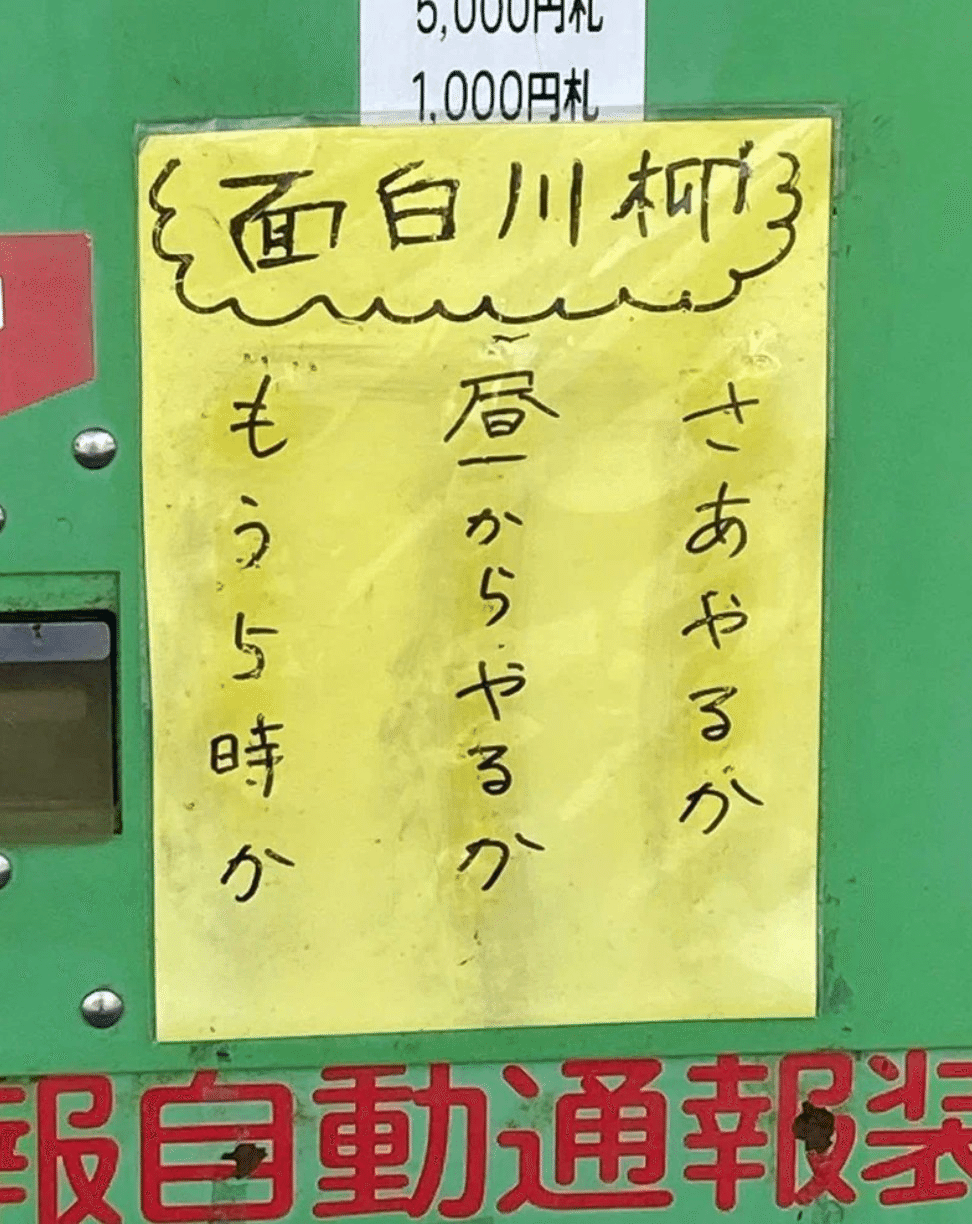 5,000円札
1,000円札
面白川柳
さあやるか
昼からやるか
もう5時か
報自動通報装